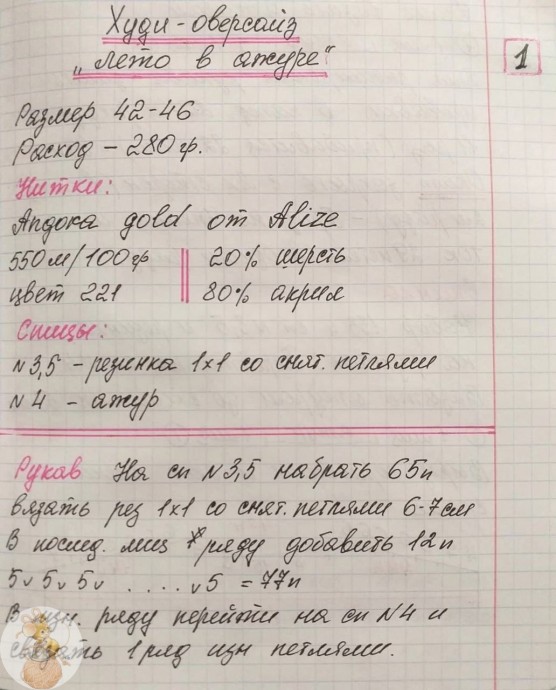 Худи-оверсайз
„Лето в ажуре“
1
Размер 42-46
Расход – 280 гр.
Нитки:
Ангора gold от Alize
550м/100гр 20% шерсть
цвет 221 80% акрил
Спицы:
N3,5 – резинка 1х1 со снят. петлями
N4 – ажур
Рукав На сп N3,5 набрать 65п
вязать рез 1х1 со снят. петлями 6-7см
В послед. лиц ряду добавить 12п
5v 5v 5v ..... v5 = 77п
В изн. ряду перейти на сп N4 и
связать 1 ряд изн петлями.